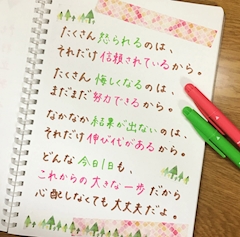 たくさん怒られるのは、
それだけ信頼されているから。
たくさん悔しくなるのは、
まだまだ努力できるから。
なかなか結果が出ないのは、
それだけ伸び代があるから。
どんな今日1日も、
これからの大きな一歩だから
心配しなくても大丈夫だよ。